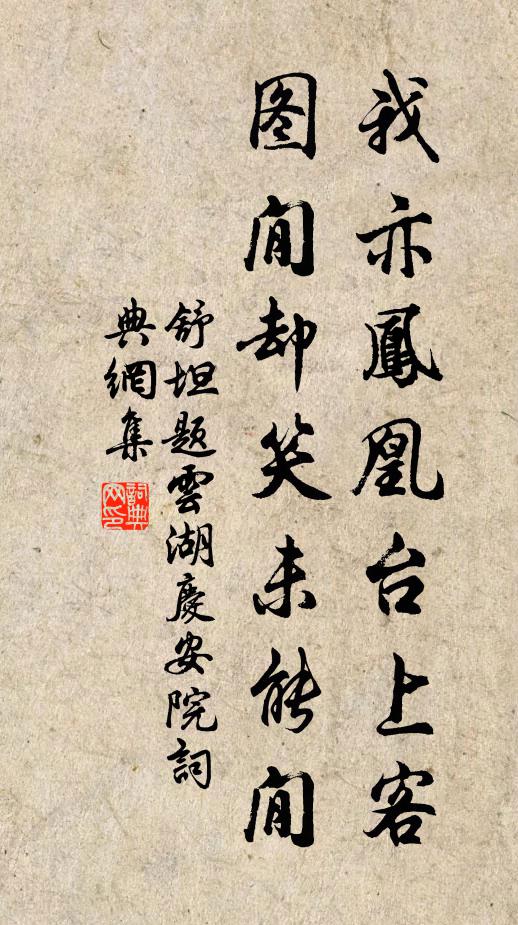 我亦鳳凰台上客
图閒却笑未能閒
舒坦題雲湖慶安院詞
典網集
詞典网印